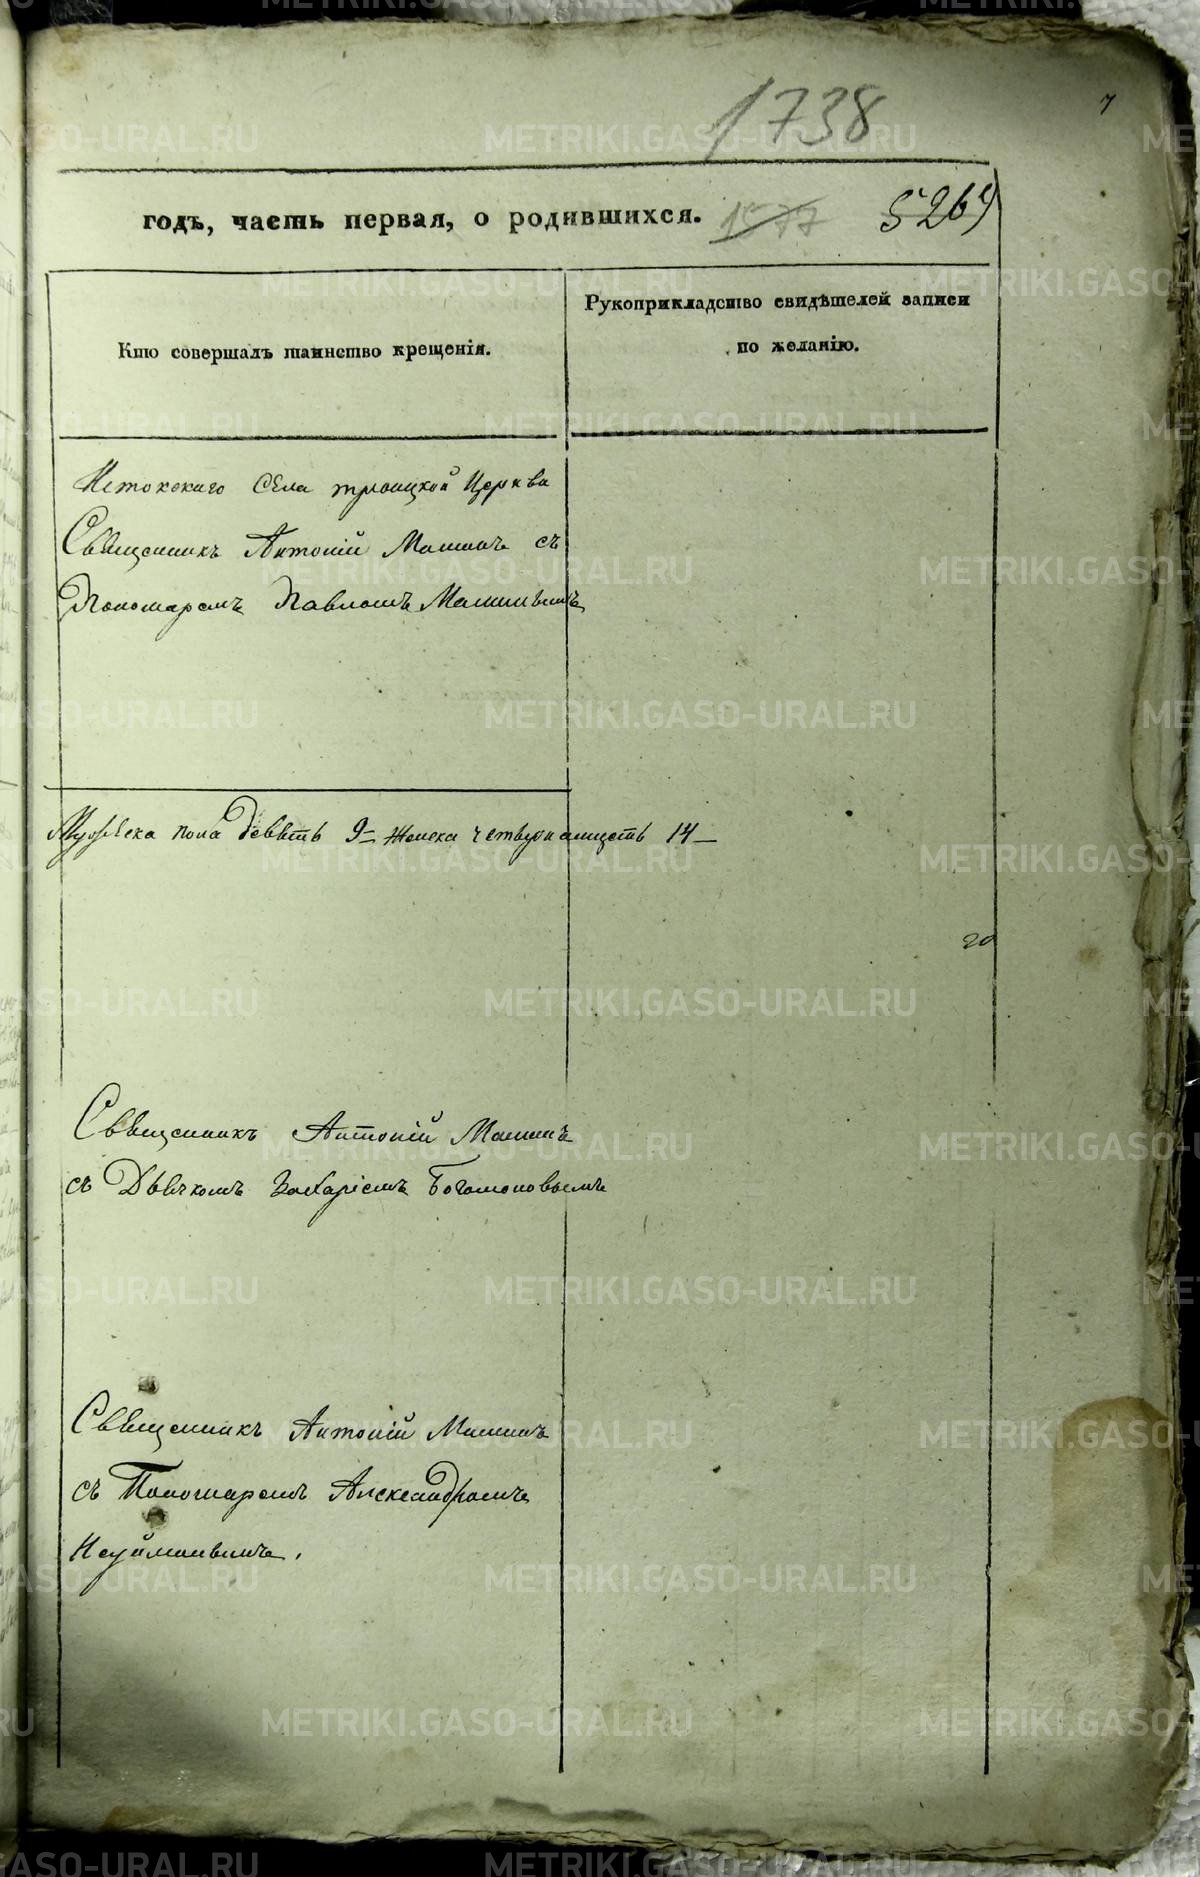 1738
7
годъ, часть первая, о родившихся. 1577
526
Кто совершалъ таинство крещенія.
Рукоприкладство свидѣтелей записи
по желанію.
Истокскаго Села троицкой Церкви
Священникъ Антоній Маминъ съ
Пономаремъ Павломъ Маминымъ
Мужеска пола девять 9 – Женска четырнатцеть 14 –
20
Священникъ Антоній Маминъ
съ Дьячкомъ Захаріемъ
Священникъ Антоній Маминъ
съ Пономаремъ Александромъ
Неуйминымъ.
METRIKI.GASO-URAL.RU